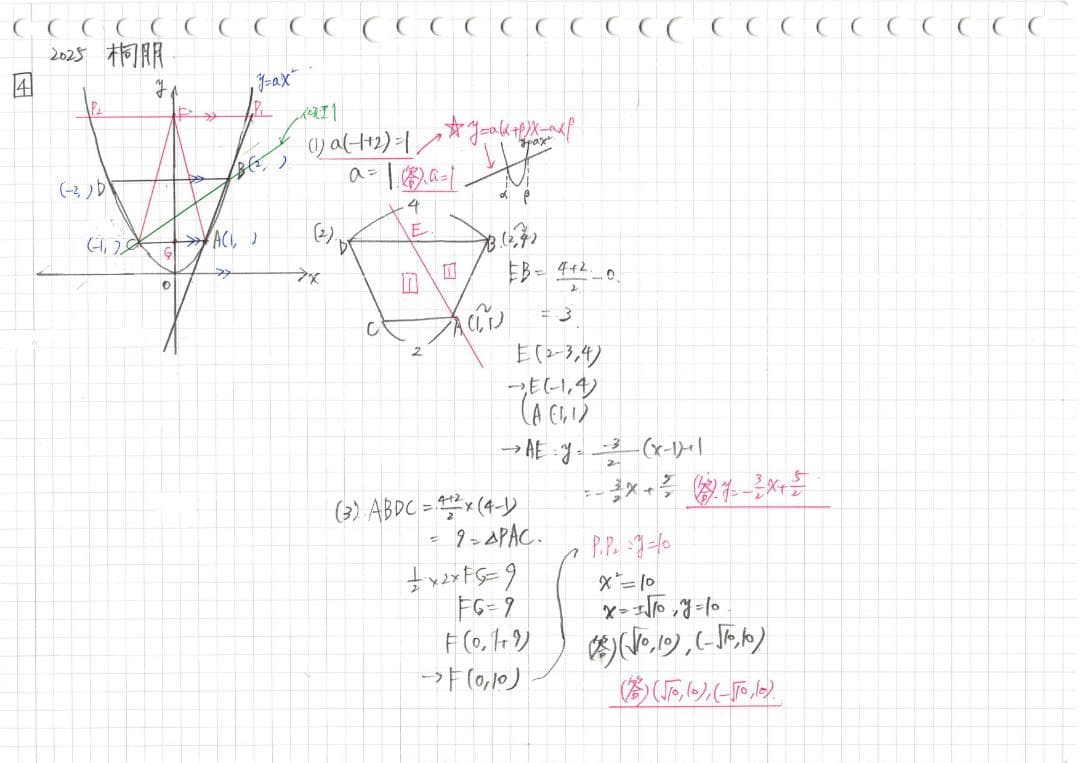 2025 桐朋
4
y
y=ax²
P₂
F
P₁
傾き1
D
(-2, )
B(2, )
(-1, )
C
G
A(1, )
O
x
(1) a(-1+2)=1
a=1
(答) a=1
☆ y=a(α+β)x-aαβ
y=ax²
α β
(2)
4
D
E
B(2,4)
1
1
C
A(1,1)
2
EB= (4+2)/2 -0
=3
E(2-3,4)
→E(-1,4)
A(1,1)
→AE:y= -3/2 (x-1)+1
=-3/2x+5/2
(答) y=-3/2x+5/2
(3) ABDC=(4+2)/2×(4-1)
= 9=△PAC.
1/2×2×FG=9
FG=9
F(0,1+9)
→F(0,10)
P₁P₂:y=10
x²=10
x=±√10, y=10
(答)(√10,10),(-√10,10)
(答)(√10,10),(-√10,10)